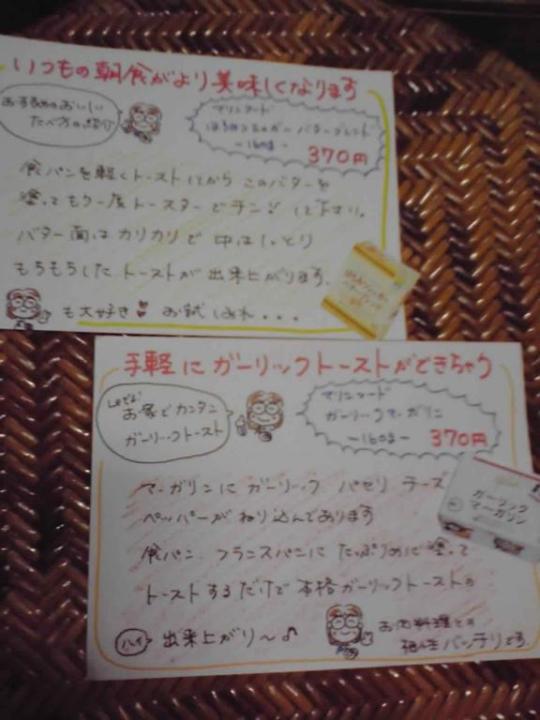 いつもの朝食がより美味しくなります
おすすめのおいしい
たべ方の紹介
マリンフード
はちみつシュガーバターブレンド
ー160gー
370円
食パンを軽くトーストしてから このバターを
塗ってもう一度トースターでチン!して下さい。
バター面はカリカリで 中はしっとり
もちもちしたトーストが出来上がります。
も大好き♥ お試しあれ・・・
手軽にガーリックトーストができちゃう
お家でカンタン
ガーリックトースト
マリンフード
ガーリックマーガリン
ー160gー
370円
マーガリンにガーリック パセリ チーズ
ペッパーがねり込んであります
ガーリック
マーガリン
食パン フランスパンに たっぷりめに塗って
トーストするだけで本格ガーリックトーストの
ハイ 出来上がり〜♪
お肉料理との
相性バッチリです。